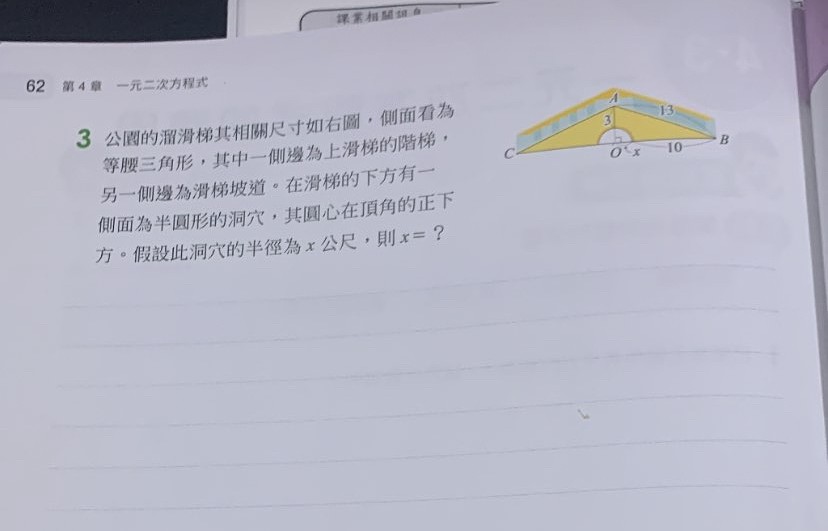 課業相關訊息
62 第4章 一元二次方程式
3 公園的溜滑梯其相關尺寸如右圖，側面看為
等腰三角形，其中一側邊為上滑梯的階梯，
另一側邊為滑梯坡道。在滑梯的下方有一
側面為半圓形的洞穴，其圓心在頂角的正下
方。假設此洞穴的半徑為 x 公尺，則 x = ？
A
13
3
C
O x 10 B